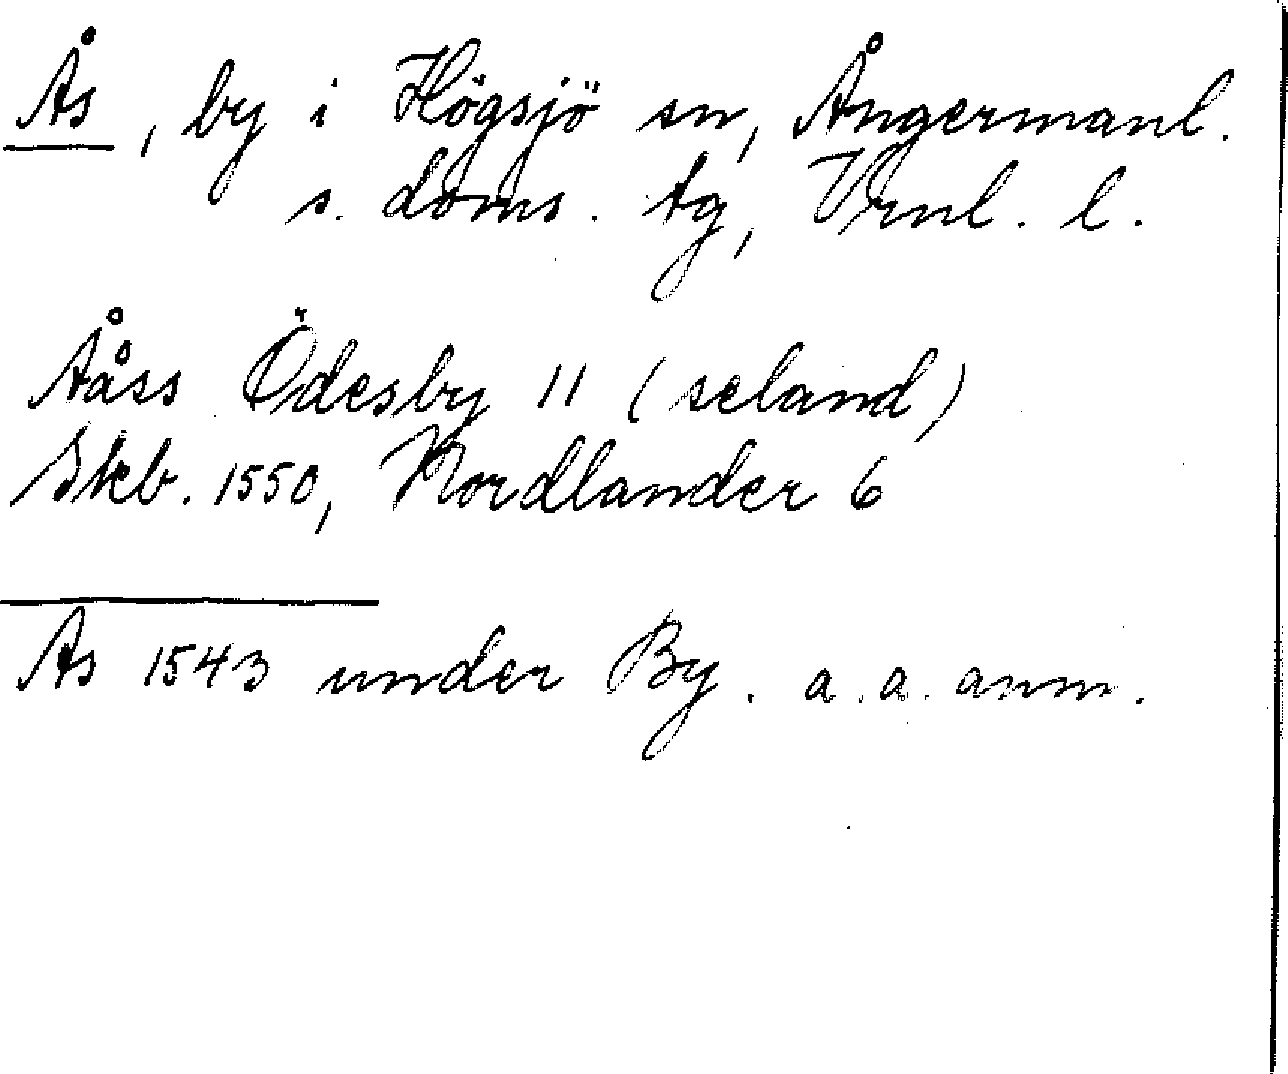 Ås, by i Högsjö sn, Ångermanl.
s. doms. tg, Vrnl. l.
Ååss Ödesby 11 (seland)
Skb. 1550, Nordlander 6
As 1543 under By. a. a. anm.